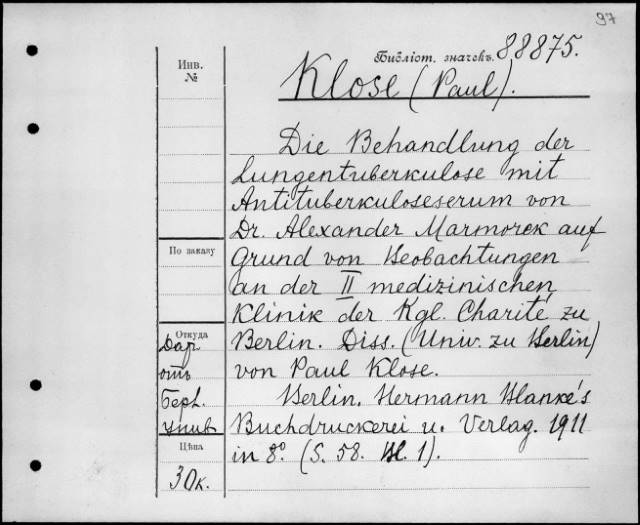 97
Инв.
№
Библіот. значекъ. 88875.
Klose (Paul).
Die Behandlung der
Lungentuberkulose mit
Antituberkuloseserum von
Dr. Alexander Marmorek auf
Grund von Beobachtungen
an der II medizinischen
Klinik der Kgl. Charité zu
Berlin. Diss. (Univ. zu Berlin)
von Paul Klose.
Berlin. Hermann Blanke's
Buchdruckerei u. Verlag. 1911
in 8º. (S. 58. Bl. 1).
По заказу
Откуда
Дар
отъ
Берл.
унив.
Цѣна
30к.